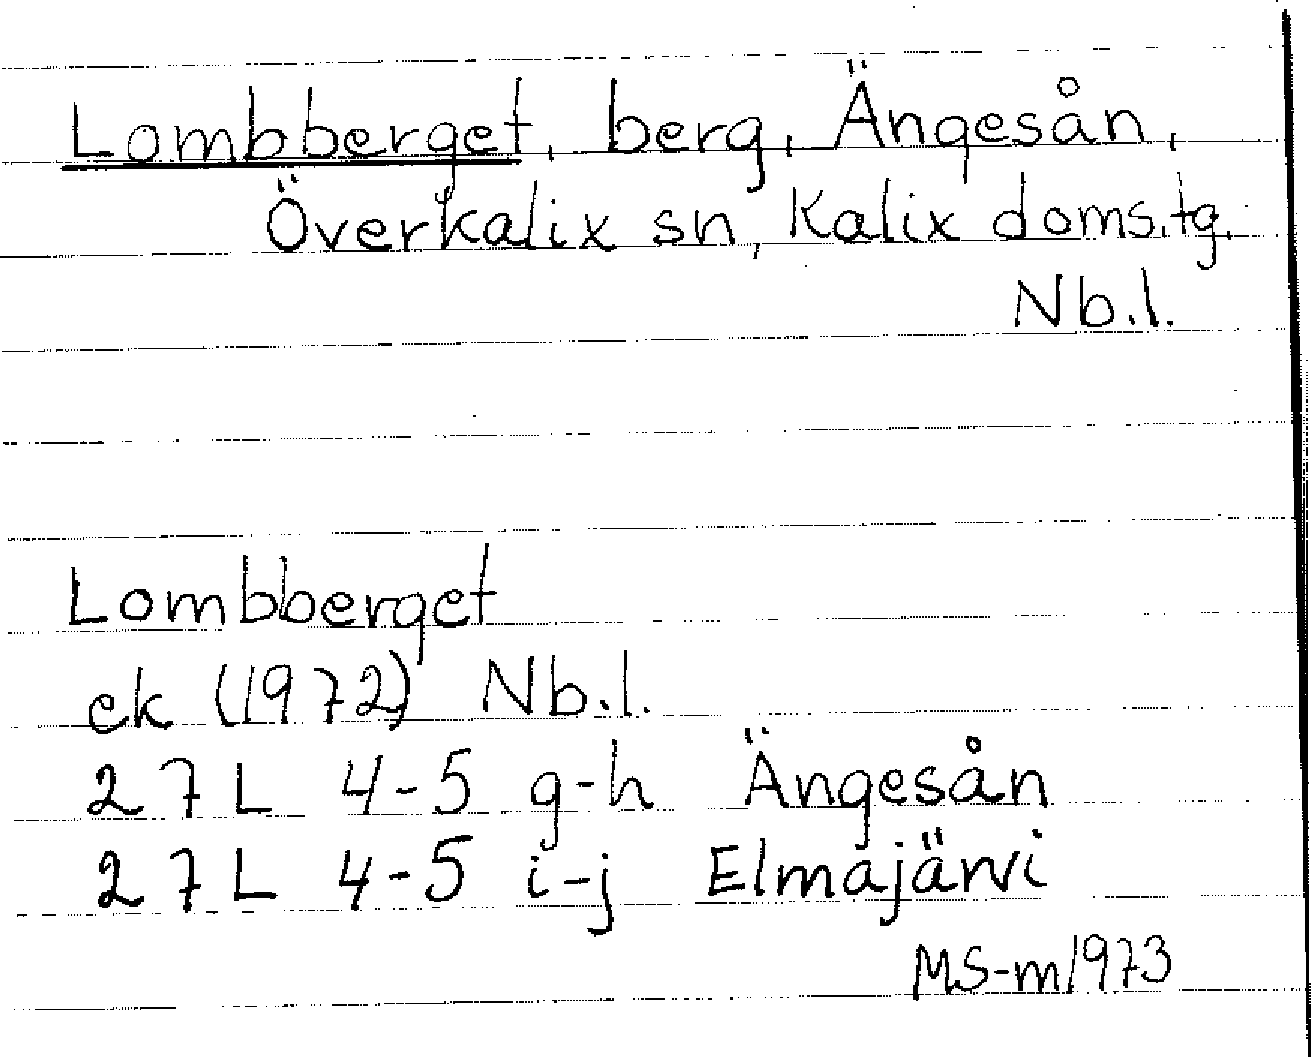 Lombberget, berg, Ängesån,
Överkalix sn, Kalix doms.tg.
Nb.l.
Lombberget
ek (1972) Nb.l.
27L 4-5 g-h Ängesån
27L 4-5 i-j Elmajärvi
MS-m1973